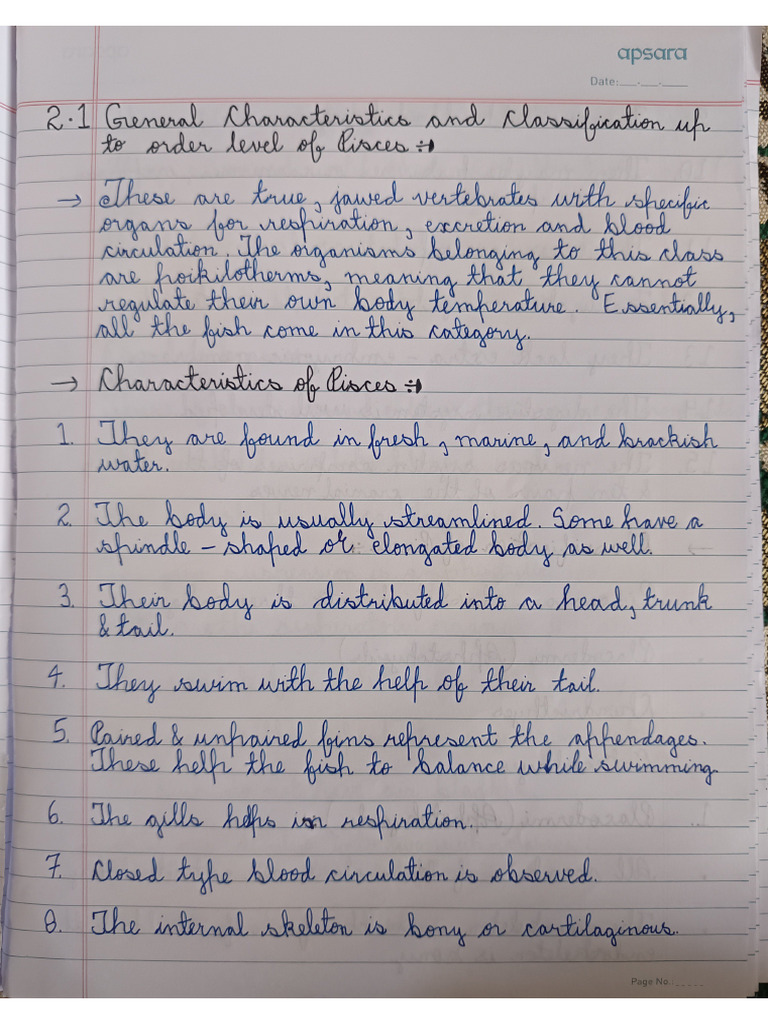 apsara
Date:__.__.__
2.1 General Characteristics and Classification up
to order level of Pisces :→
→ These are true, jawed vertebrates with specific
organs for respiration, excretion and blood
circulation. The organisms belonging to this class
are poikilotherms, meaning that they cannot
regulate their own body temperature. Essentially,
all the fish come in this category.
→ Characteristics of Pisces :→
1. They are found in fresh, marine, and brackish
water.
2. The body is usually streamlined. Some have a
spindle – shaped or elongated body as well.
3. Their body is distributed into a head, trunk
& tail.
4. They swim with the help of their tail.
5. Paired & unpaired fins represent the appendages.
These help the fish to balance while swimming.
6. The gills helps in respiration.
7. Closed type blood circulation is observed.
8. The internal skeleton is bony or cartilaginous.
Page No.:_____